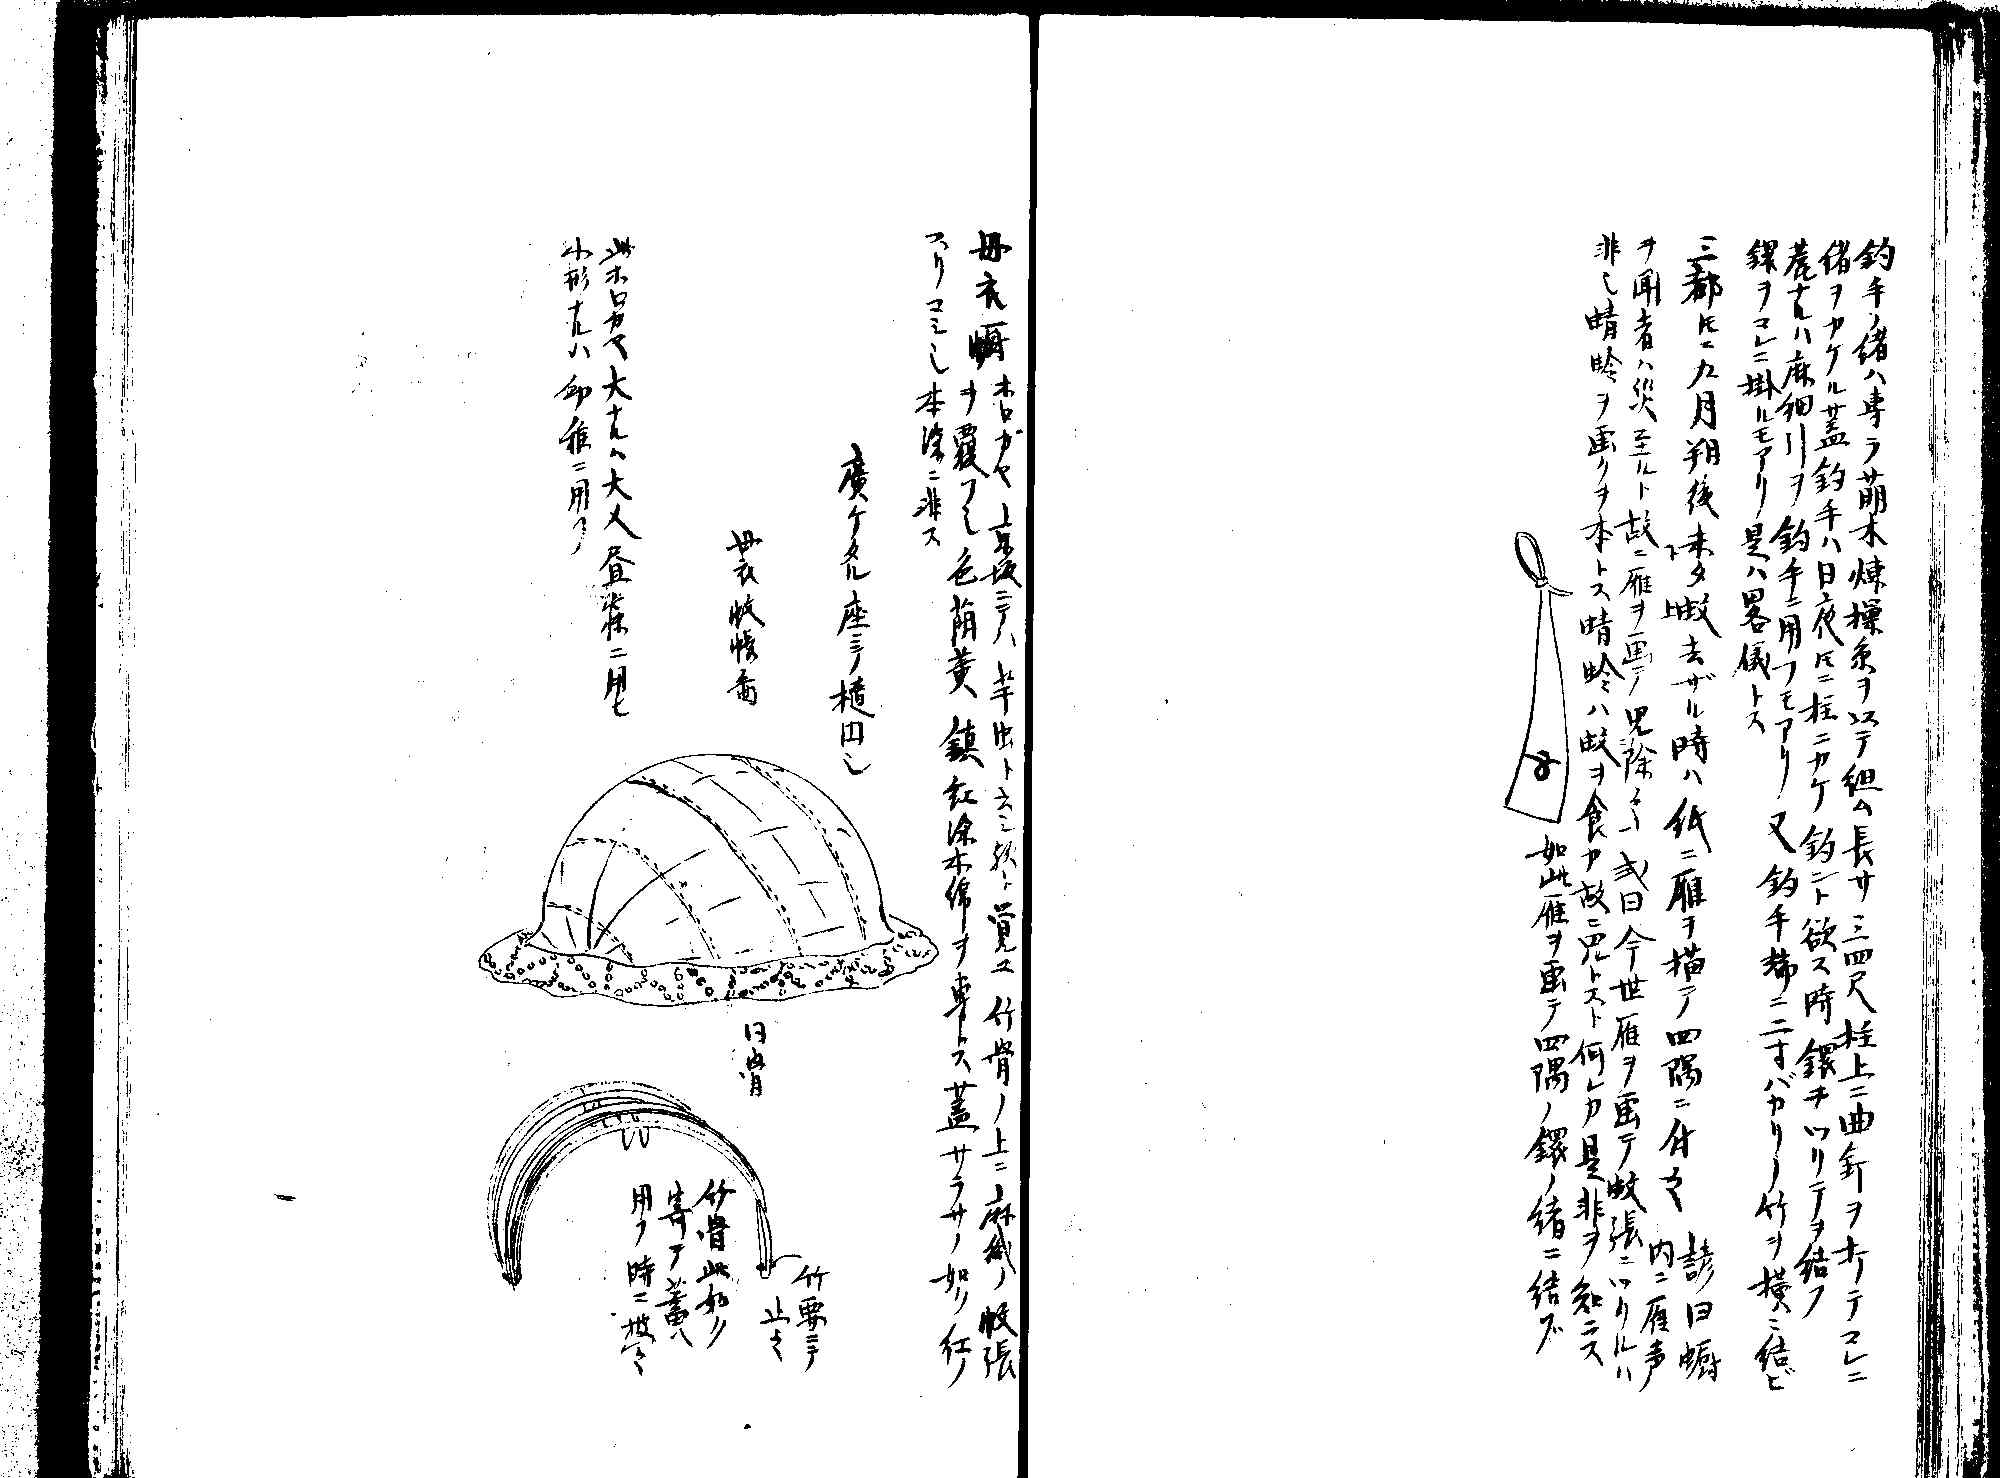 釣手ノ緒ハ専ラ萌木煉操糸ヲ以テ組ム長サ三四尺柱上ニ曲釘ヲ打テコレニ
緒ヲカケル蓋釣手ハ日夜トモニ柱ニカケ釣ント欲ス時鐶ヲツリテヲ結フ
麁ナルハ麻細引ヲ釣手ニ用フモアリ又釣手端ニ二寸バカリノ竹ヲ横ニ結ビ
鐶ヲコレニ掛ルモアリ是ハ畧儀トス
三都トモニ九月朔後未タ蚊去ザル時ハ紙ニ雁ヲ描テ四隅ニ付ル 諺曰蟵
内ニ雁声
ヲ聞者ハ災至ルト故ニ雁ヲ画テ児除 或曰今世雁ヲ画テ蚊張ニツリルハ
非也蜻蛉ヲ画クヲ本トス蜻蛉ハ蚊ヲ食カ故ニ児トスト何レカ是非ヲ知ニス
如此雁ヲ画テ四隅ノ鐶ノ緒ニ結ブ
母衣蟵 ホロガヤ 京坂ニテハ芋虫ト云シ歟ト覚ユ竹骨ノ上ニ麻織ノ蚊張
ヲ覆フ也色萠黄鎮紅染木綿ヲ専トス蓋サラサノ如ク紅ノ
スリコミ也本染ニ非ス
廣ケタル座ニテ楕円也
母衣蚊帳
此ホロカヤ大ナルハ大人昼寐ニ用ヒ
小形ナルハ幼稚ニ用フ
同骨
竹要ニテ
止ル
竹骨此如ク
寄テ蓄ヘ
用フ時ニ披ク